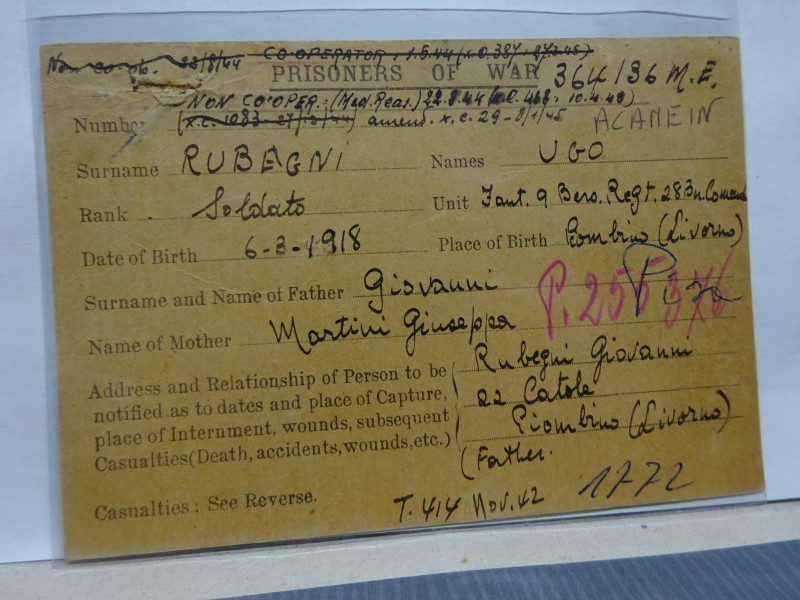 Non coop. 23/8/44 CO-OPERATOR. 1.5.44
PRISONERS OF WAR 364136 M.E.
NON CO'OPER. (Med. Reas.) 22.8.44 10.4.48)
Number (X.C. 1083 - 27/12/44) amend. x.c. 29 - 8/1/45 ALANEIN
Surname RUBEGNI Names UGO
Rank . Soldato Unit Fant. 9 Bers. Regt. 28 Bn. Comand
Date of Birth 6-3-1918 Place of Birth Piombino (Livorno)
Surname and Name of Father Giovanni P. 255376
Name of Mother Martini Giuseppa Pisa
Address and Relationship of Person to be Rubegni Giovanni
notified as to dates and place of Capture, 22 Catole
place of Internment, wounds, subsequent Piombino (Livorno)
Casualties (Death, accidents, wounds, etc.) (Father.
Casualties: See Reverse. T. 414 Nov. 42 1772